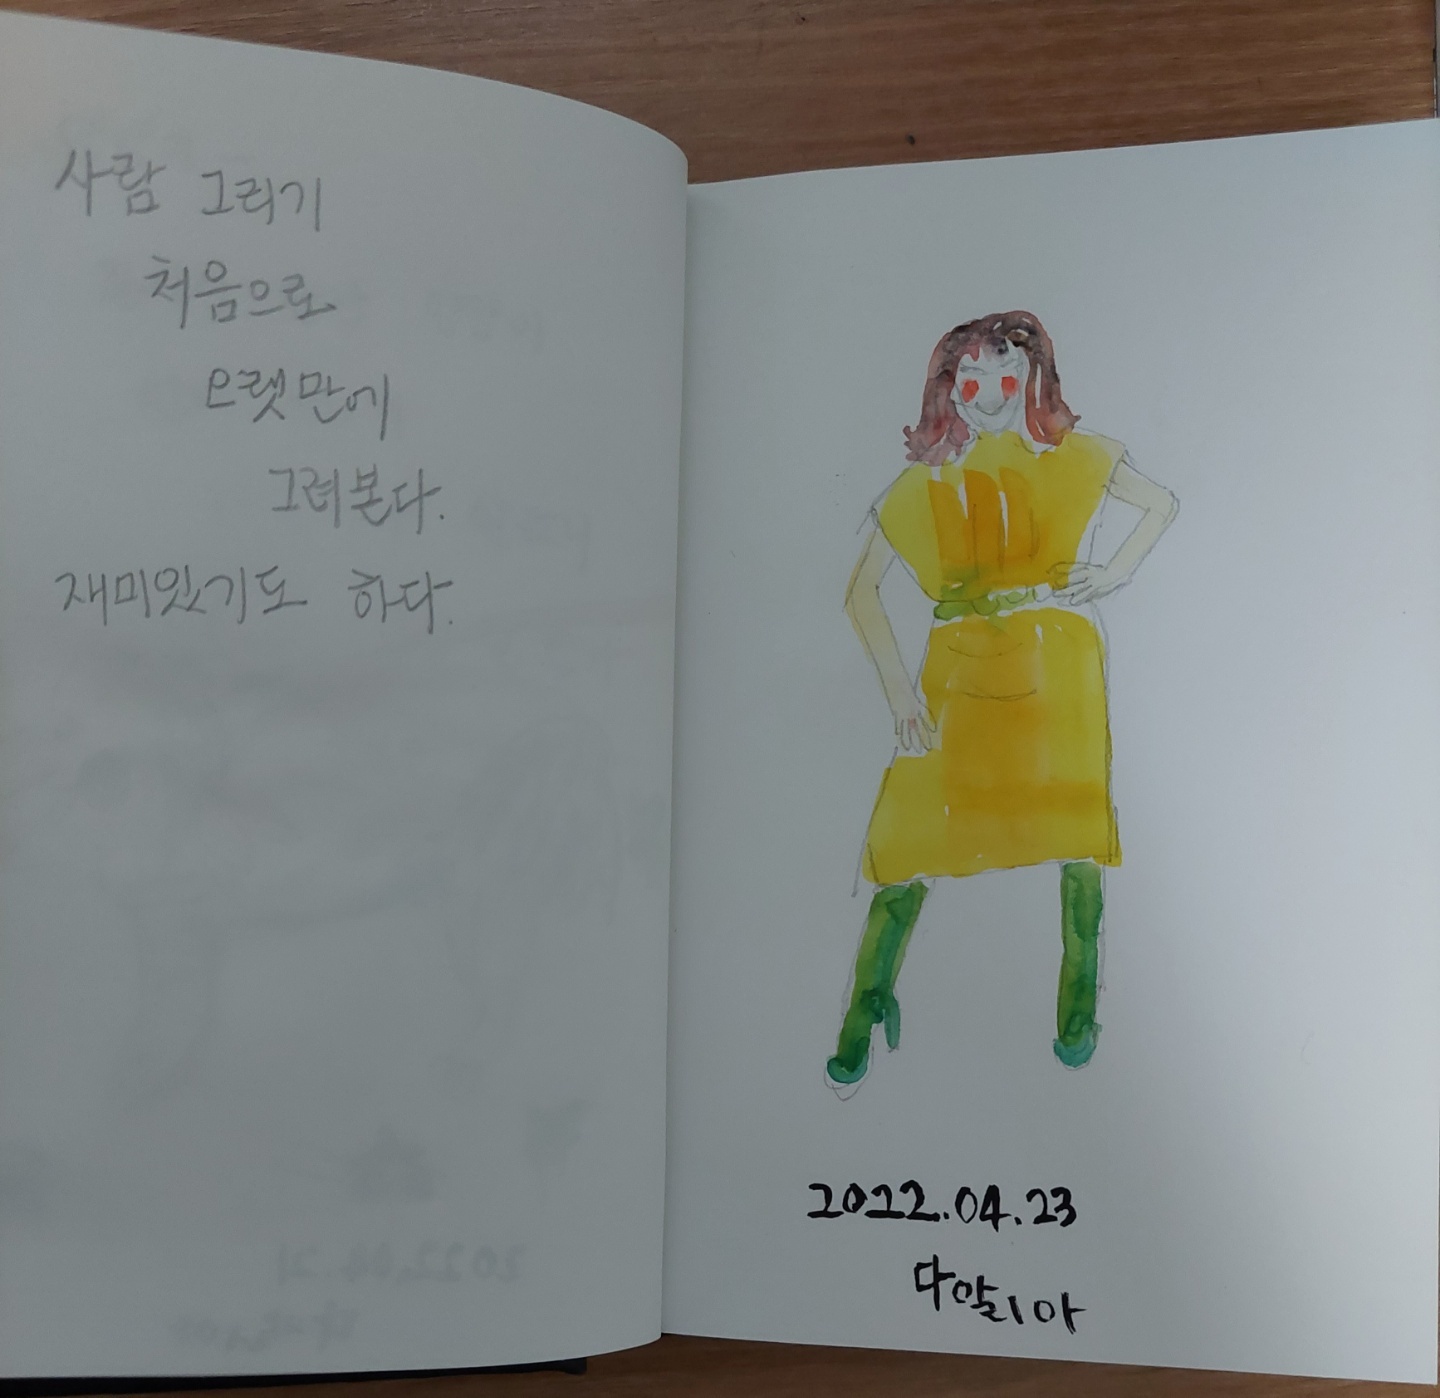 사람 그리기
처음으로
오랫만에
그려본다.
재미있기도 하다.
2022.04.23
다알리아